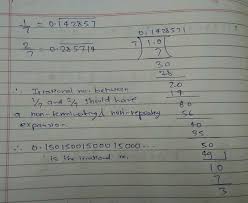 1/7 = 0.142857
2/7 = 0.285714
∴ Irrational no. between
1/7 and 2/7 should have
a non-terminating non-repeating
expansion.
∴ 0.15015001500015000...
is the irrational n.
0.142857
7 1.0
7
30
28
20
14
60
56
40
35
50
49
10
7
3